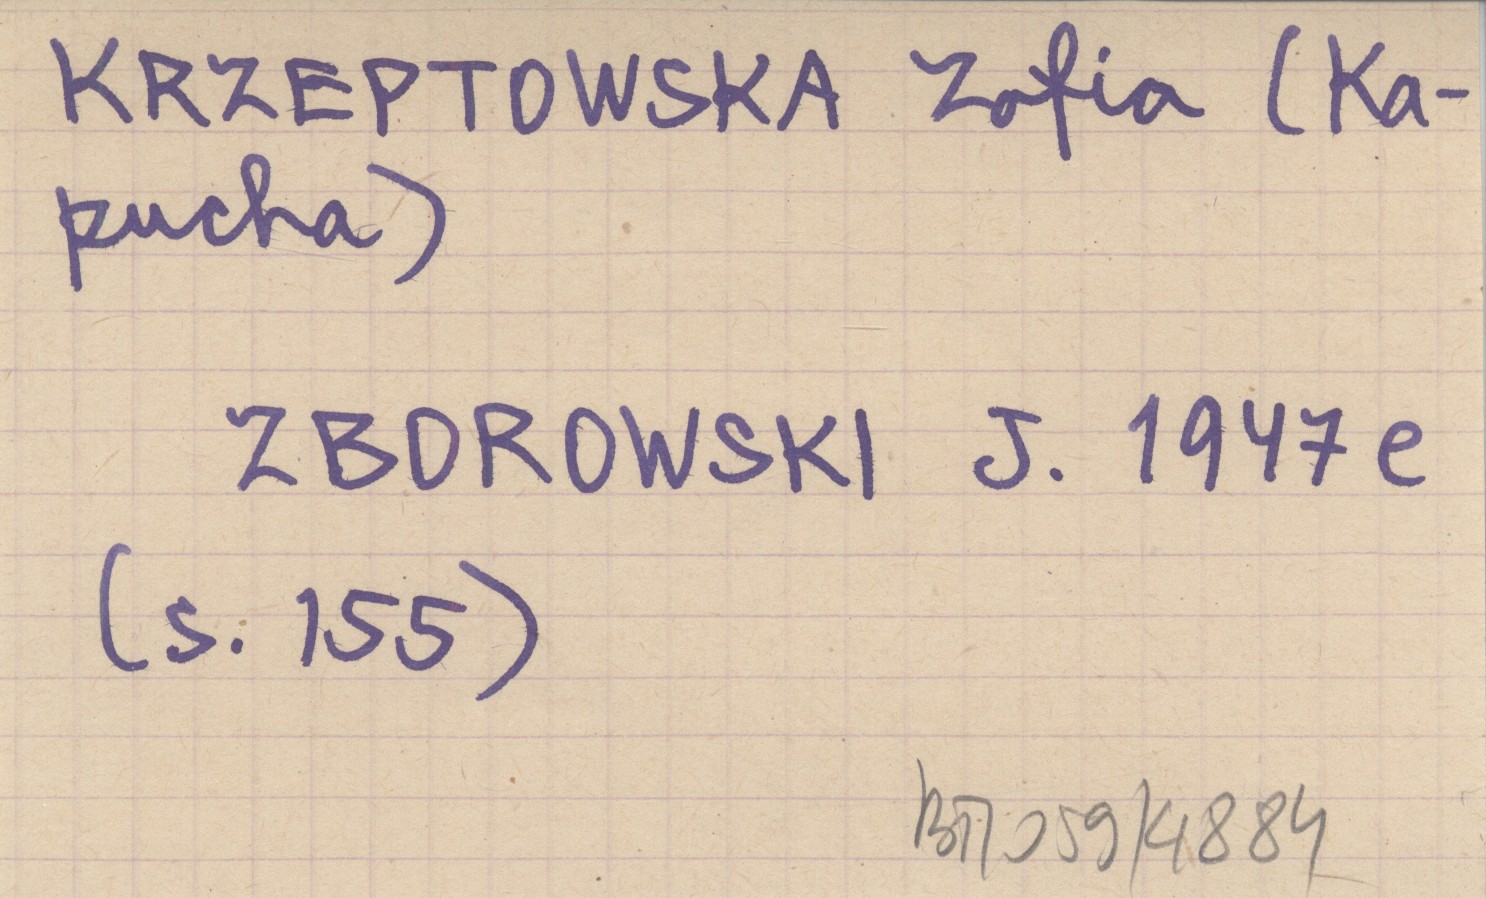 KRZEPTOWSKA Zofia (Ka-
pucha)
ZBOROWSKI J. 1947e
(s. 155)
059/4884